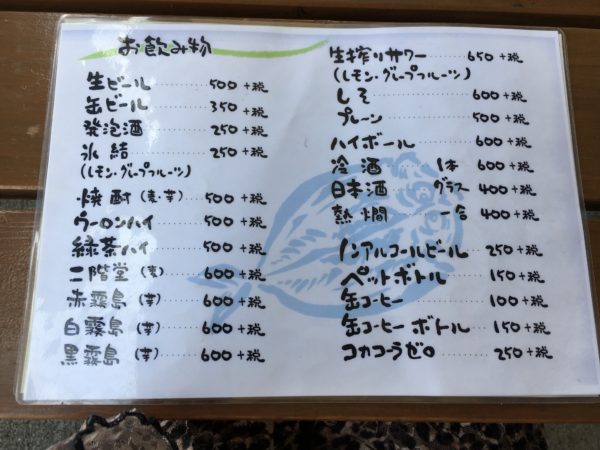 お飲み物
生ビール 500 +税
缶ビール 350 +税
発泡酒 250 +税
氷結 250 +税
(レモン・グレープフルーツ)
焼酎 (麦・芋) 500 +税
ウーロンハイ 500 +税
緑茶ハイ 500 +税
二階堂 (麦) 600 +税
赤霧島 (芋) 600 +税
白霧島 (芋) 600 +税
黒霧島 (芋) 600 +税
生搾りサワー 650 +税
(レモン・グレープフルーツ)
しそ 600 +税
プレーン 500 +税
ハイボール 600 +税
冷酒 1本 600 +税
日本酒 グラス 400 +税
熱燗 一合 400 +税
ノンアルコールビール 250 +税
ペットボトル 150 +税
缶コーヒー 100 +税
缶コーヒーボトル 150 +税
コカコーラゼロ 250 +税